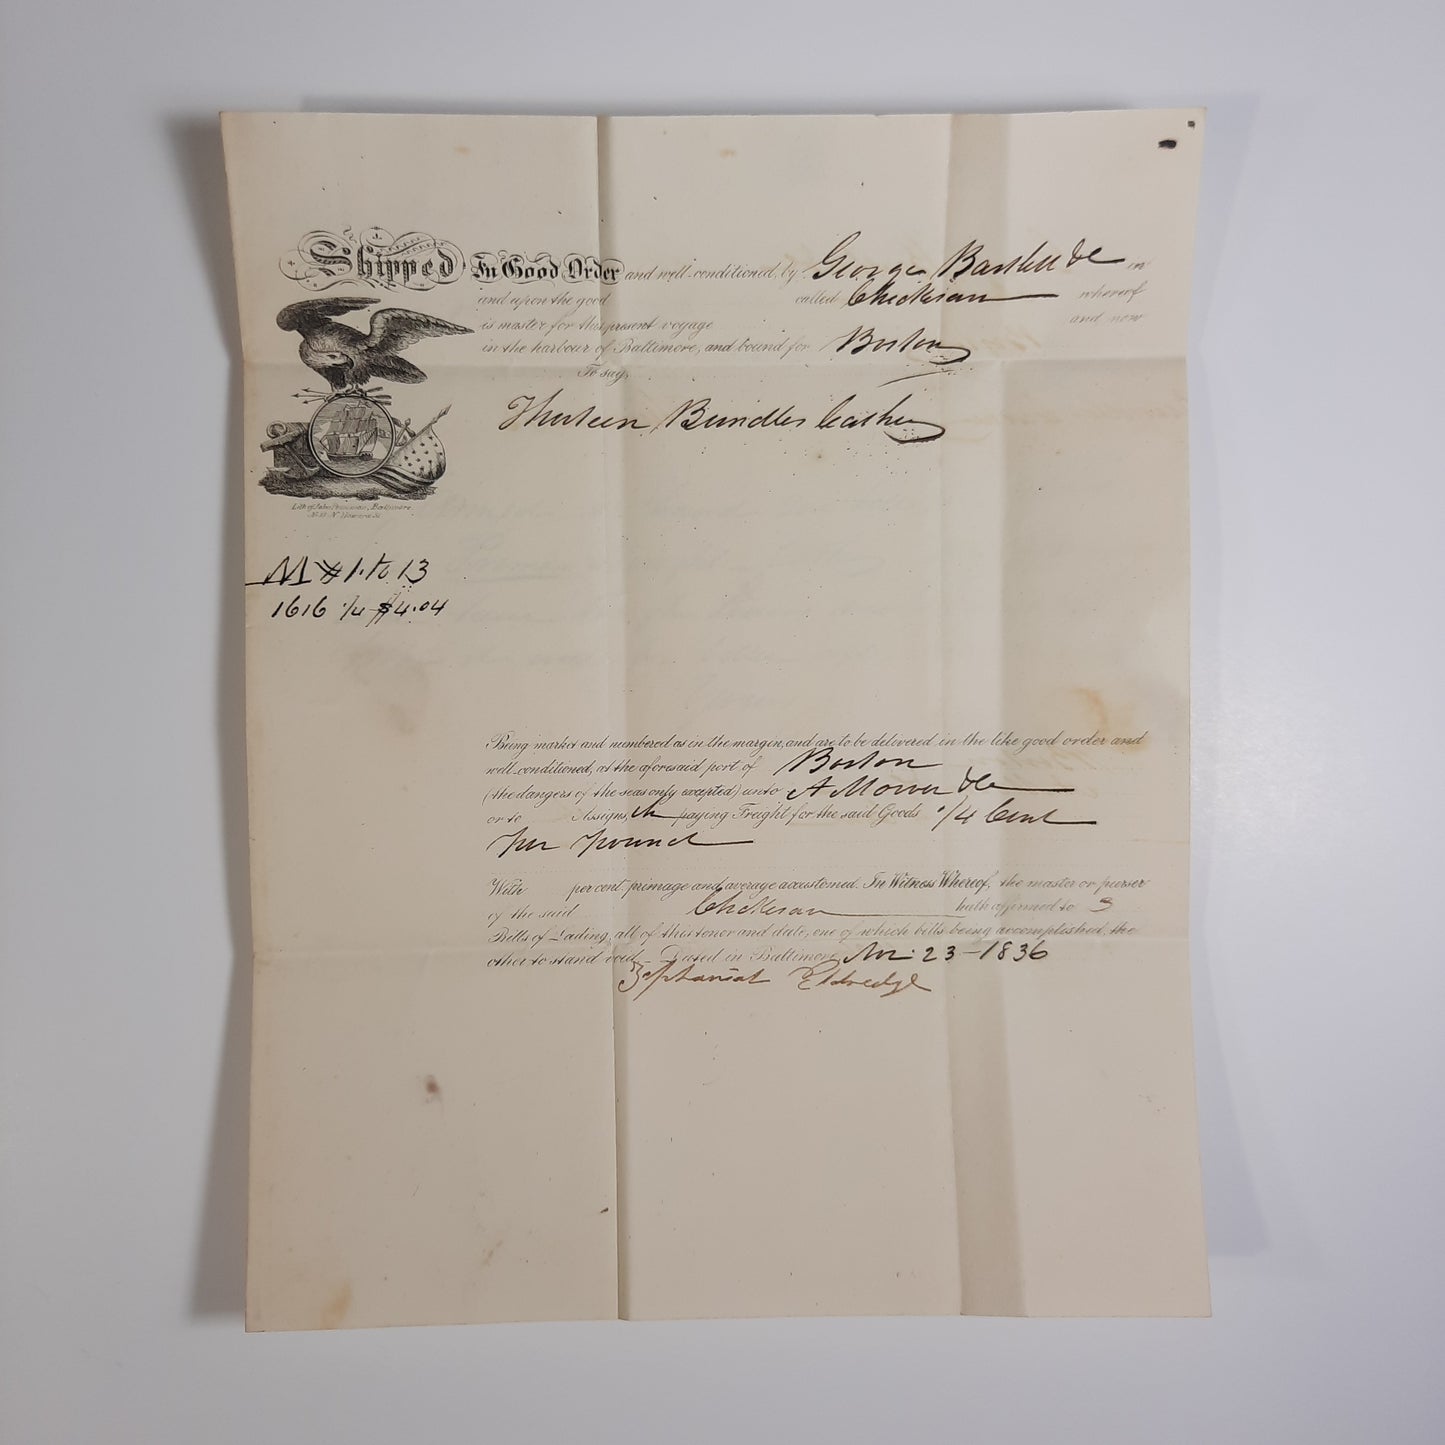 Shipped In Good Order and well-conditioned, by George Bartlett &c in
and upon the good called Chickesaw whereof
is master for this present voyage and now
in the harbour of Baltimore, and bound for Boston
To say,
Thirteen Bundles Leather
Lith of John Penniman, Baltimore
M # 1 to 13
1616 1/4 $4.04
Being market and numbered as in the margin, and are to be delivered in the like good order and
well-conditioned, at the aforesaid port of Boston
(the dangers of the seas only excepted) unto A Mower &Co
or to Assigns, paying Freight for the said Goods 1/4 Cent
per pound
With per cent. primage and average accustomed. In Witness Whereof, the master or purser
of the said Chickesaw hath affirmed to 3
Bills of Lading, all of this tenor and date, one of which bills being accomplished, the
other to stand void – Dated in Baltimore Nov. 23 – 1836
Zephaniah Eldredge